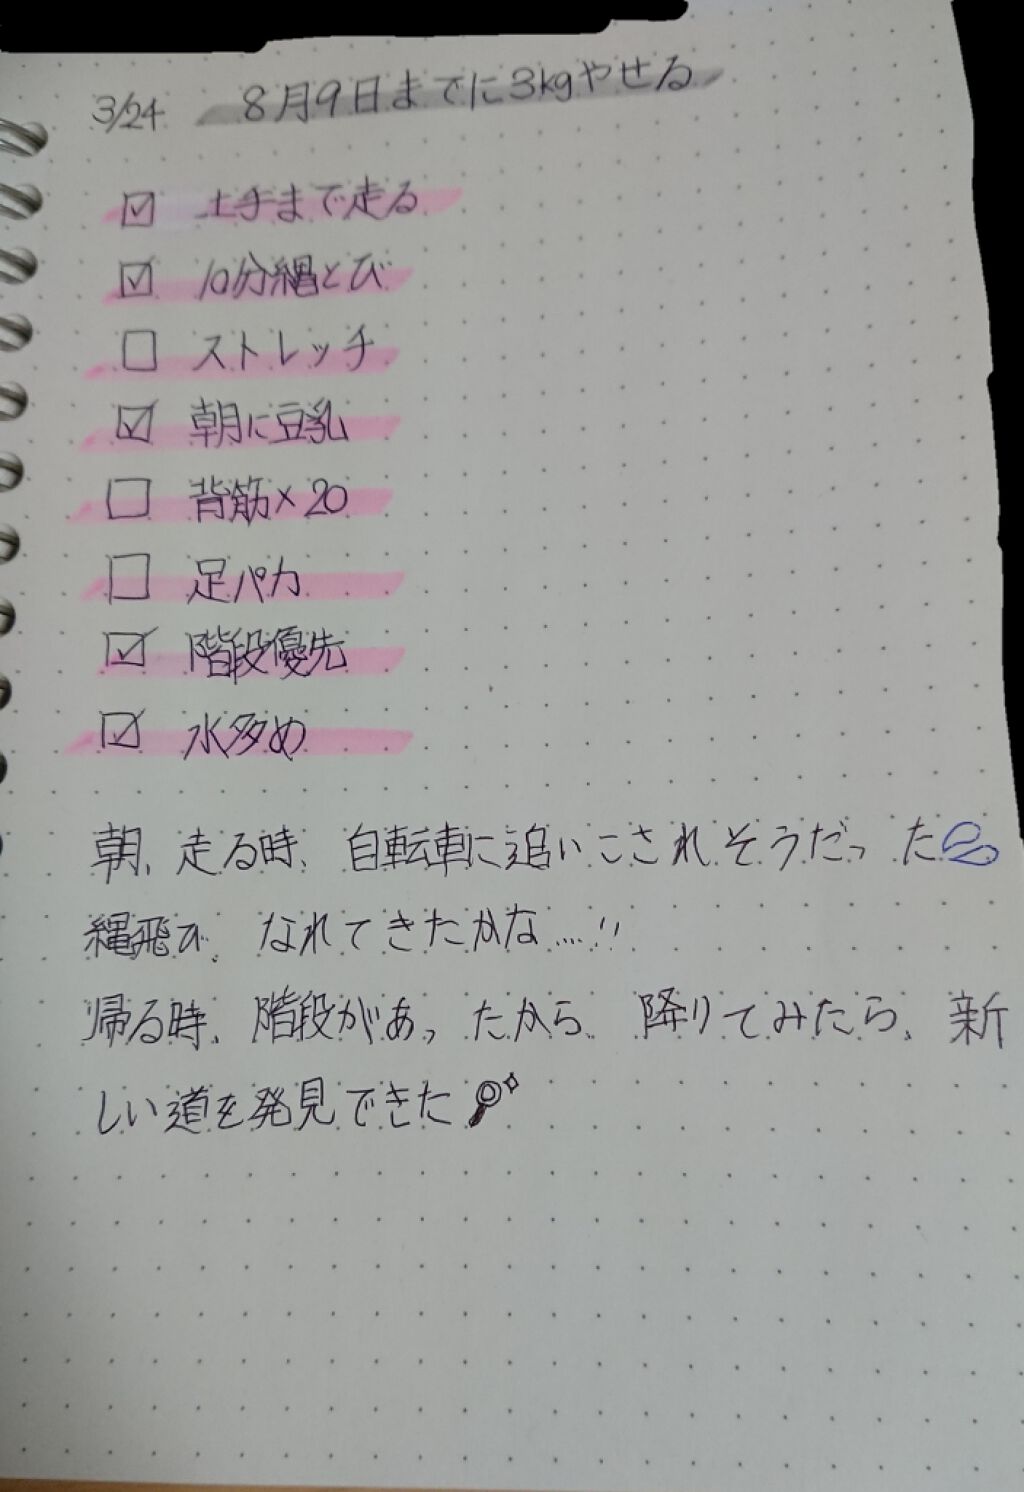 3/24 8月9日までに3kgやせる
☑ 土手まで走る
☑ 10分縄とび
☐ ストレッチ
☑ 朝に豆乳
☐ 背筋×20
☐ 足パカ
☑ 階段優先
☑ 水多め
朝、走る時、自転車に追いこされそうだった
縄飛び、なれてきたかな....!!
帰る時、階段があったから、降りてみたら、新
しい道を発見できた